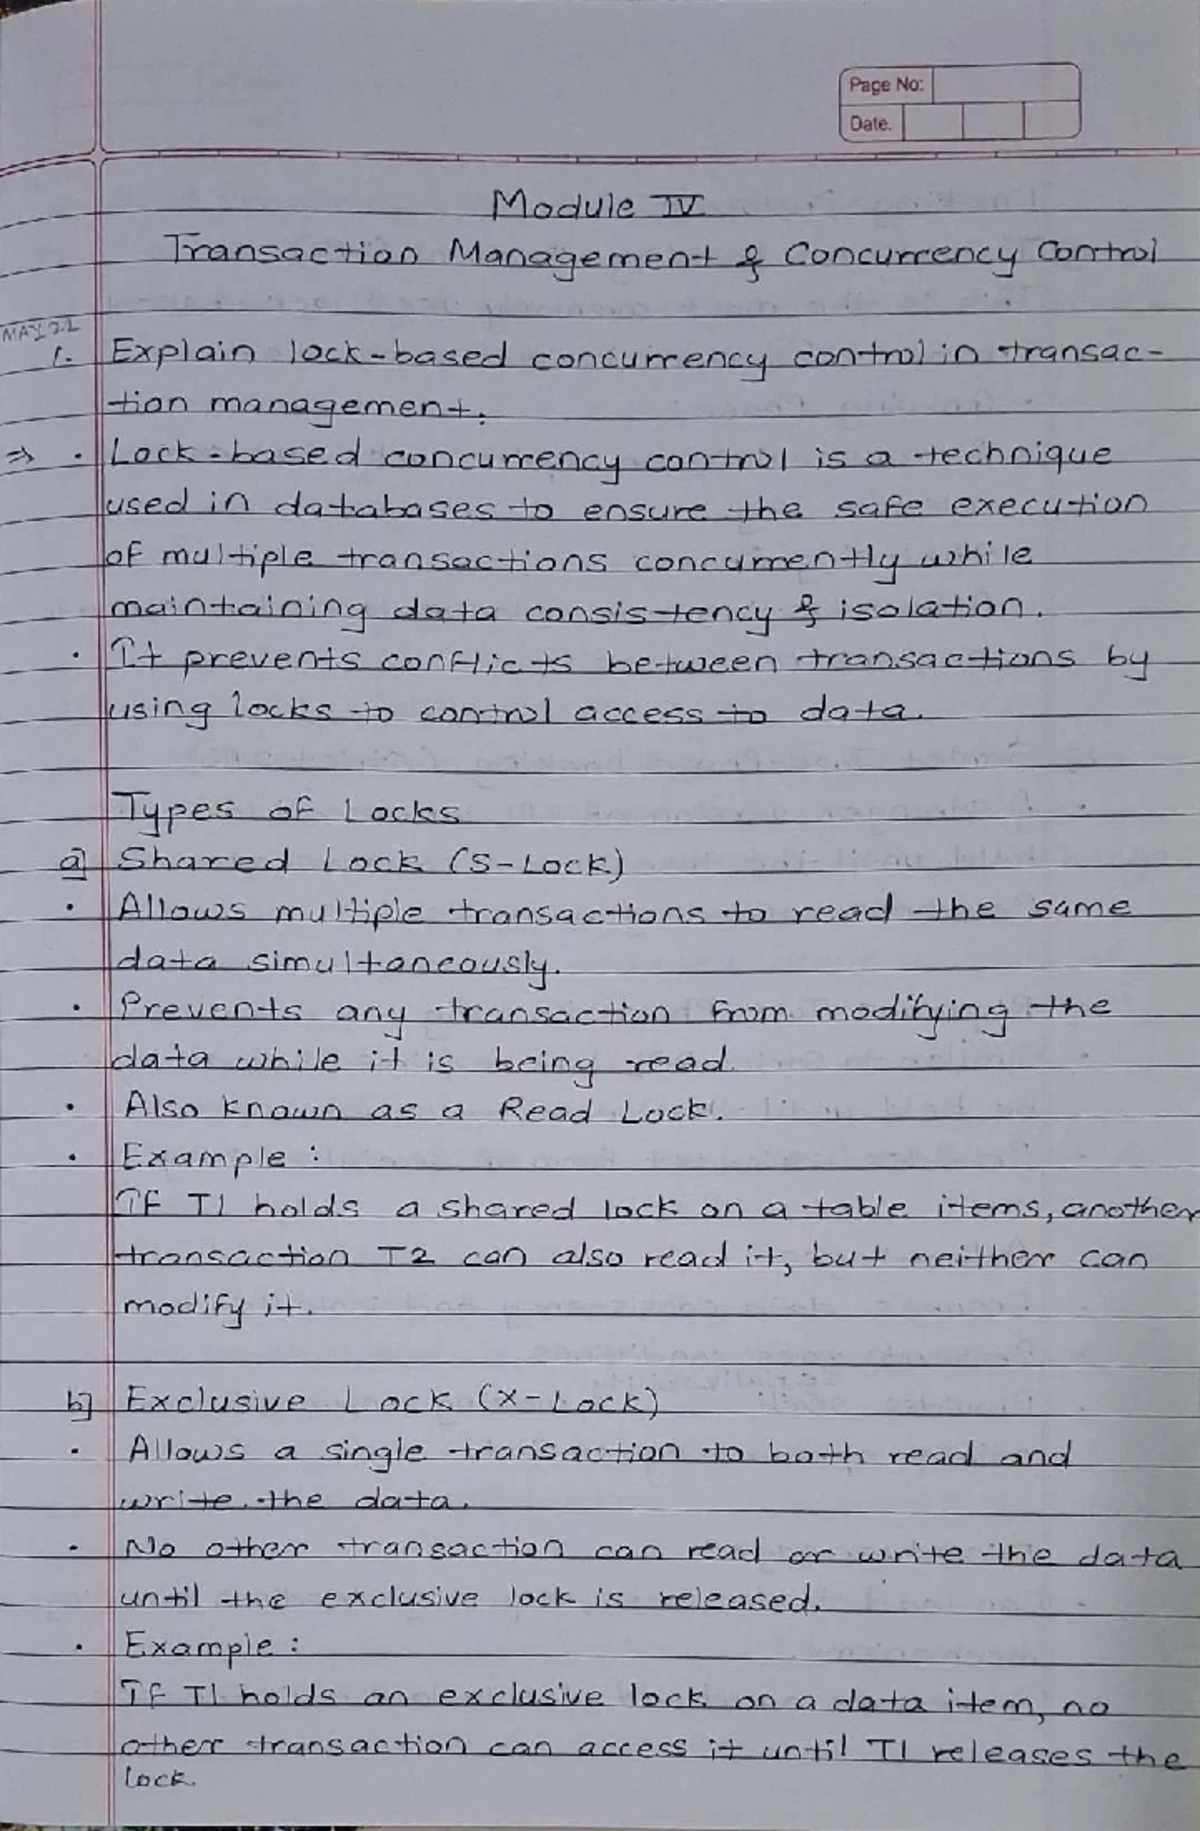 Page No:
Date.
Module IV
Transaction Management & Concurrency Control
MAY 22
1. Explain lock-based concurrency control in transac-
tion management.
⇒ • Lock-based concurrency control is a technique
used in databases to ensure the safe execution
of multiple transactions concurrently while
maintaining data consistency & isolation.
• It prevents conflicts between transactions by
using locks to control access to data.
Types of Locks
a] Shared Lock (S-Lock)
• Allows multiple transactions to read the same
data simultaneously.
• Prevents any transaction from modifying the
data while it is being read.
• Also known as a Read Lock.
• Example :
If T1 holds a shared lock on a table items, another
transaction T2 can also read it, but neither can
modify it.
b] Exclusive Lock (X-Lock)
• Allows a single transaction to both read and
write the data.
• No other transaction can read or write the data
until the exclusive lock is released.
• Example :
If T1 holds an exclusive lock on a data item, no
other transaction can access it until T1 releases the
lock.